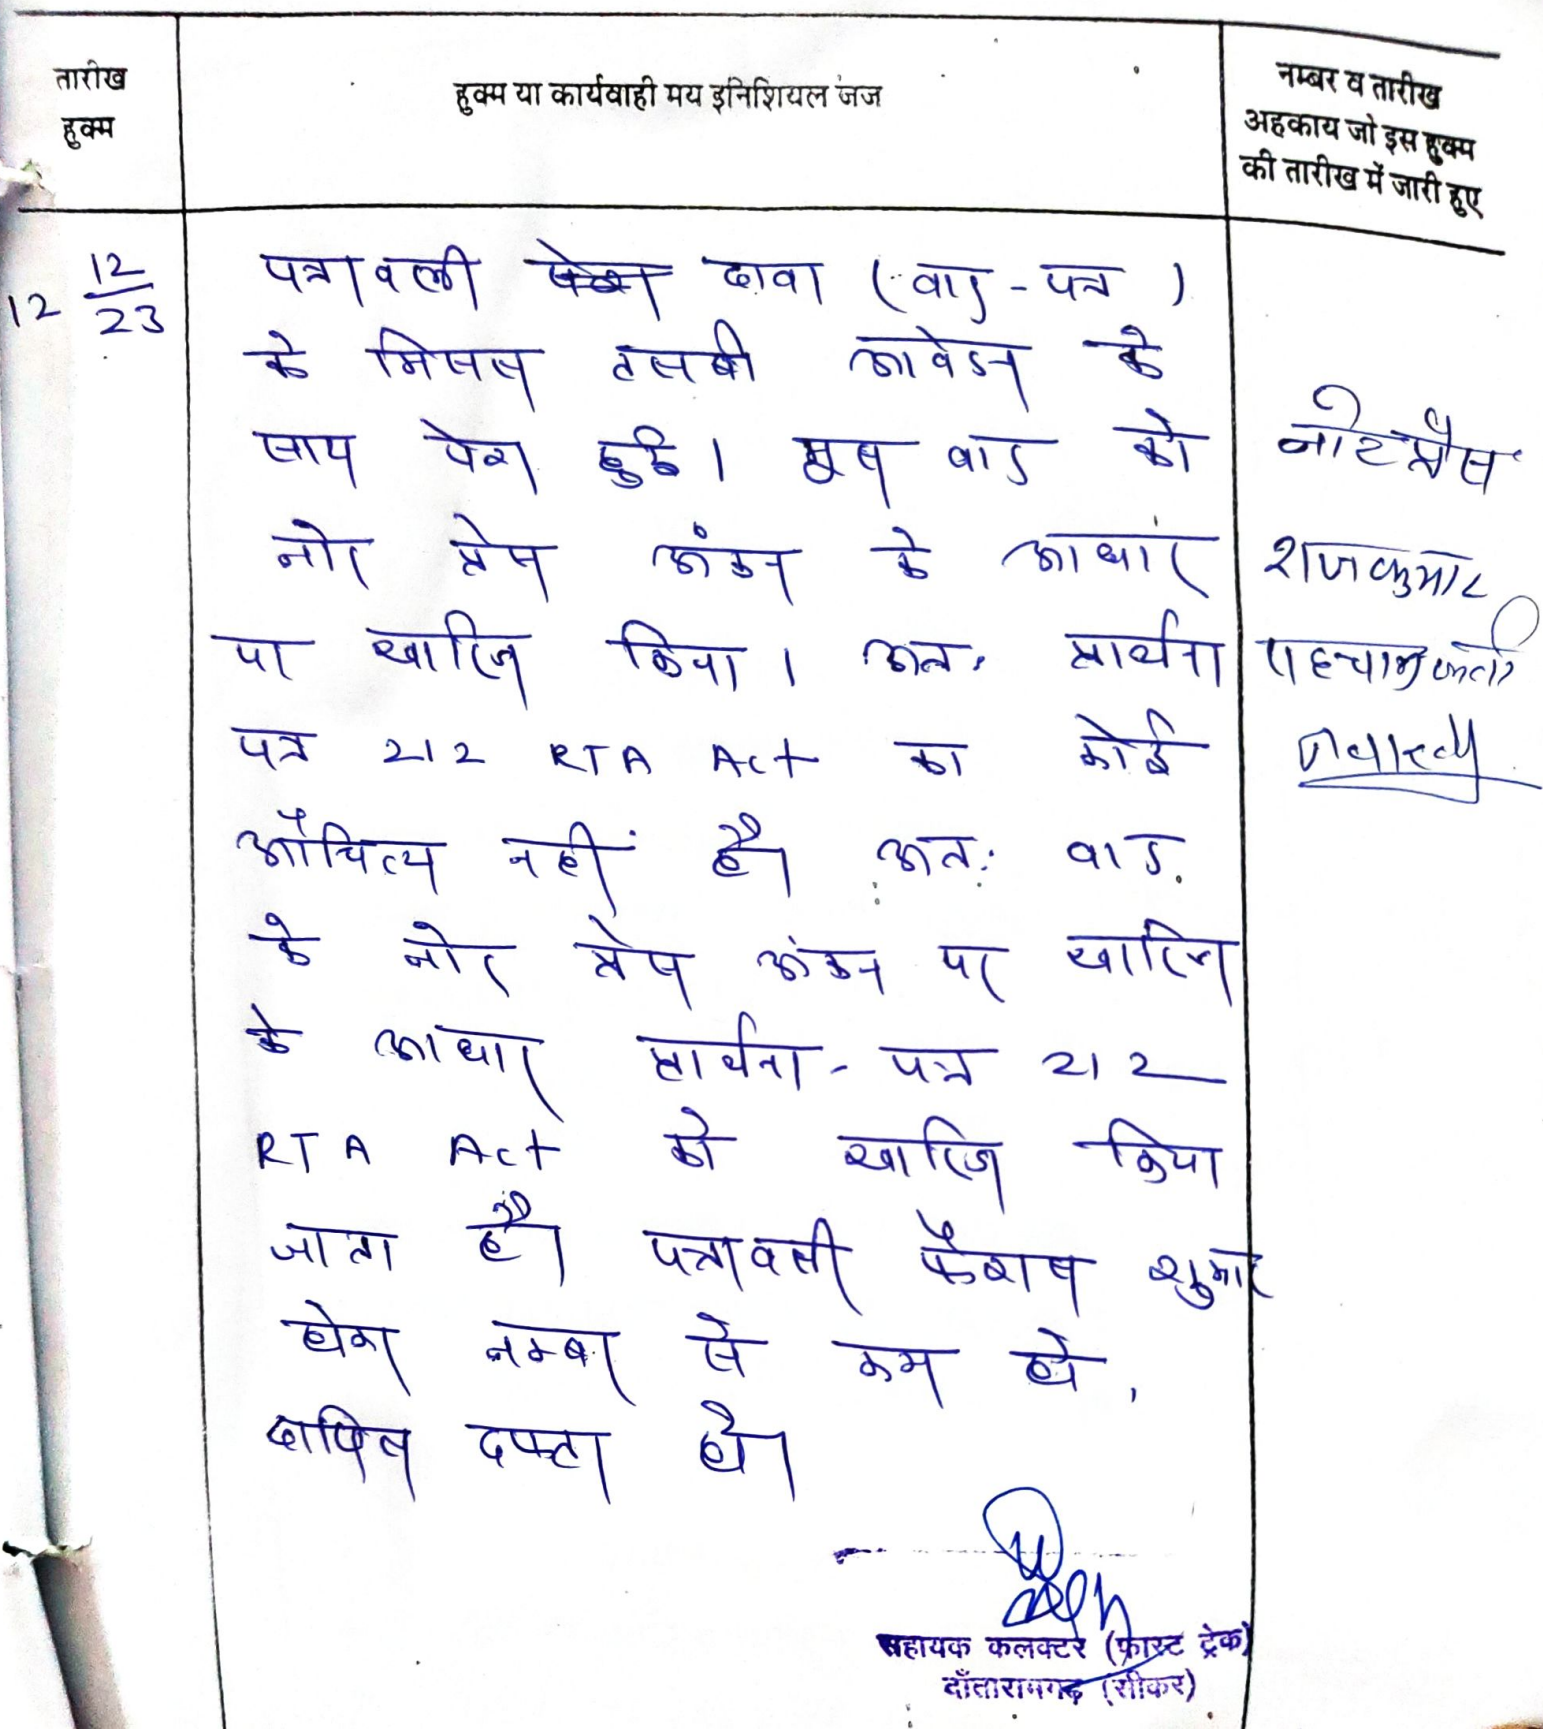 तारीख
हुक्म
हुक्म या कार्यवाही मय इनिशियल जज
नम्बर व तारीख
अहकाय जो इस हुक्म
की तारीख में जारी हुए
12 12/23
पत्रावली दावा (वाद-पत्र)
के मिसल तलबी आवेदन के
साथ पेश हुई। मूल वाद को
नोट प्रेस अंकन के आधार
पर खारिज किया। अतः प्रार्थना
पत्र 212 RTA Act का कोई
औचित्य नहीं है। अतः वाद
के नोट प्रेस अंकन पर खारिज
के आधार प्रार्थना-पत्र 212
RTA Act को खारिज किया
जाता है। पत्रावली फैशल शुमार
होकर नम्बर से कम हो,
दाखिल दफ्तर हो।
नोट प्रैस
राजकुमार
पहचानकर्ता
सहायक कलक्टर (फ़ास्ट ट्रेक)
दाँतारामगढ़ (सीकर)